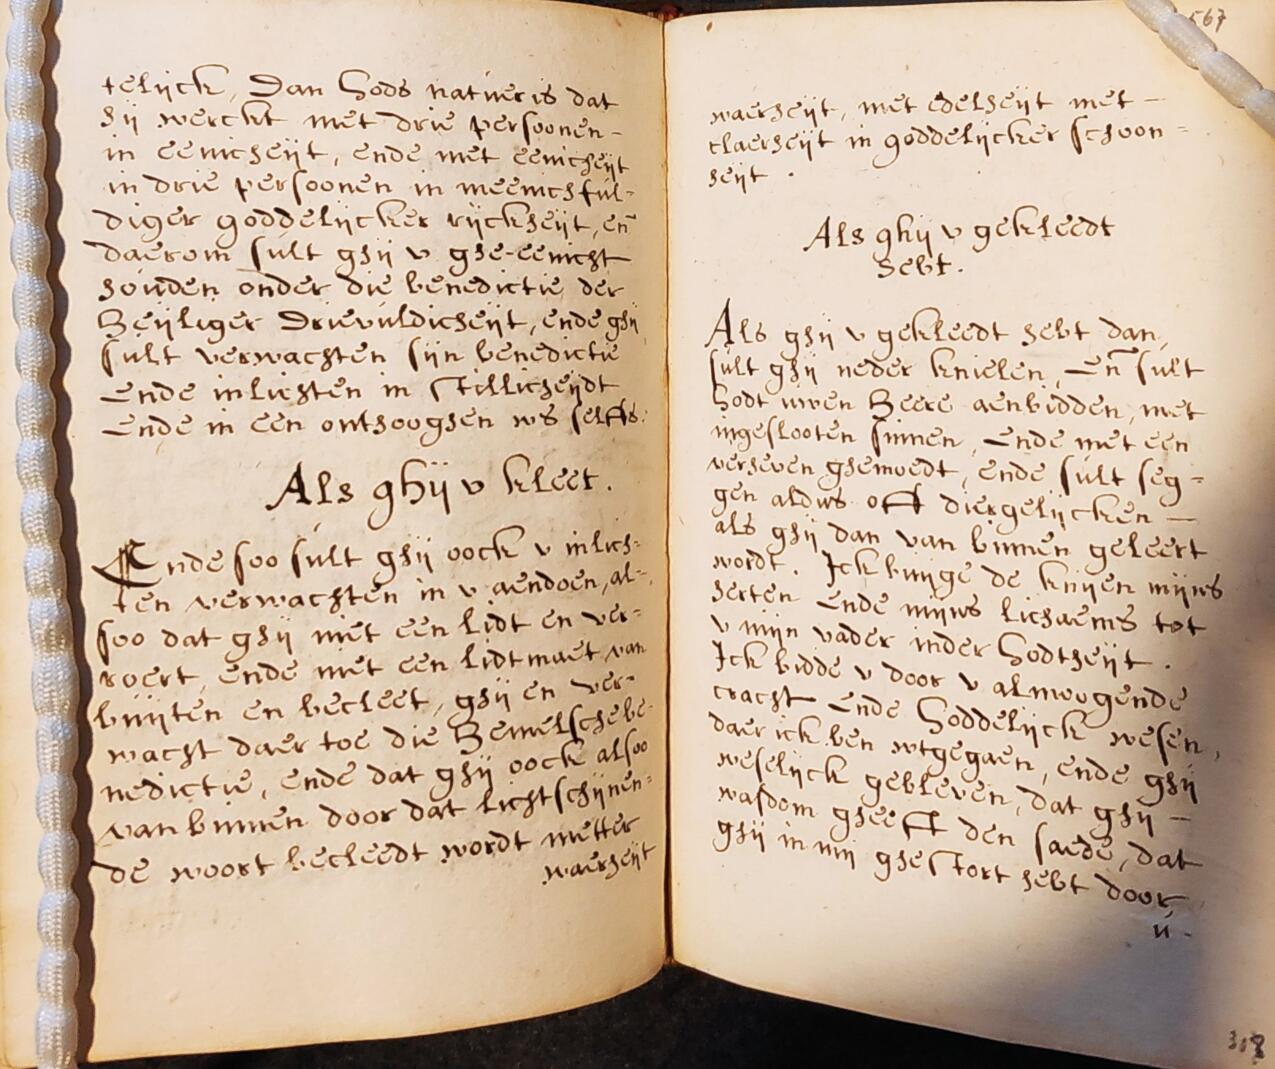 telijck, Dan Godts natuer is dat
hij werckt met drie persoonen
in eenicheijt, ende met eenicheijt
in drie persoonen in meenichful-
diger goddelijcker rijckheijt, en̄
daerom sult ghij v ghe-eenicht
houden onder die benedictie der
Heijliger Drievuldicheijt, ende ghij
sult verwachten sijn benedictie
Ende inlichten in stillicheijdt
Ende in een onthooghen ws selffs.
Als ghij v kleet.
Ende soo sult ghij oock v inlich-
ten verwachten in v aendoen, al-
soo dat ghij niet een lidt en ver-
roert, ende niet een lidtmaet van
buijten en becleet, ghij en ver-
wacht daer toe die Hemelsche be-
nedictie, ende dat ghij oock alsoo
van binnen door dat lichtschijnen-
de woort becleedt wordt metter
waerheijt
567
waerheijt, met edelheijt met
claerheijt in goddelijcker schoon-
heijt.
Als ghij v gekleedt
hebt.
Als ghij v gekleedt hebt dan,
sult ghij neder knielen, En̄ sult
Godt uwen Heere aenbidden, met
ingeslooten sinnen, Ende met een
verheven ghemoedt, ende sult seg-
gen aldus off diergelijcken
als ghij dan van binnen geleert
wordt. Ick buijge de knijen mijns
herten Ende mijns lichaems tot
v mijn vader inder Godtheijt.
Ick bidde v door v almoogende
cracht Ende Goddelijck wesen,
daer ick ben wtgegaen, ende ghij
weselijck gebleven, dat ghij
wasdom gheeft den saede, dat
ghij in mij ghestort hebt door
u.
318